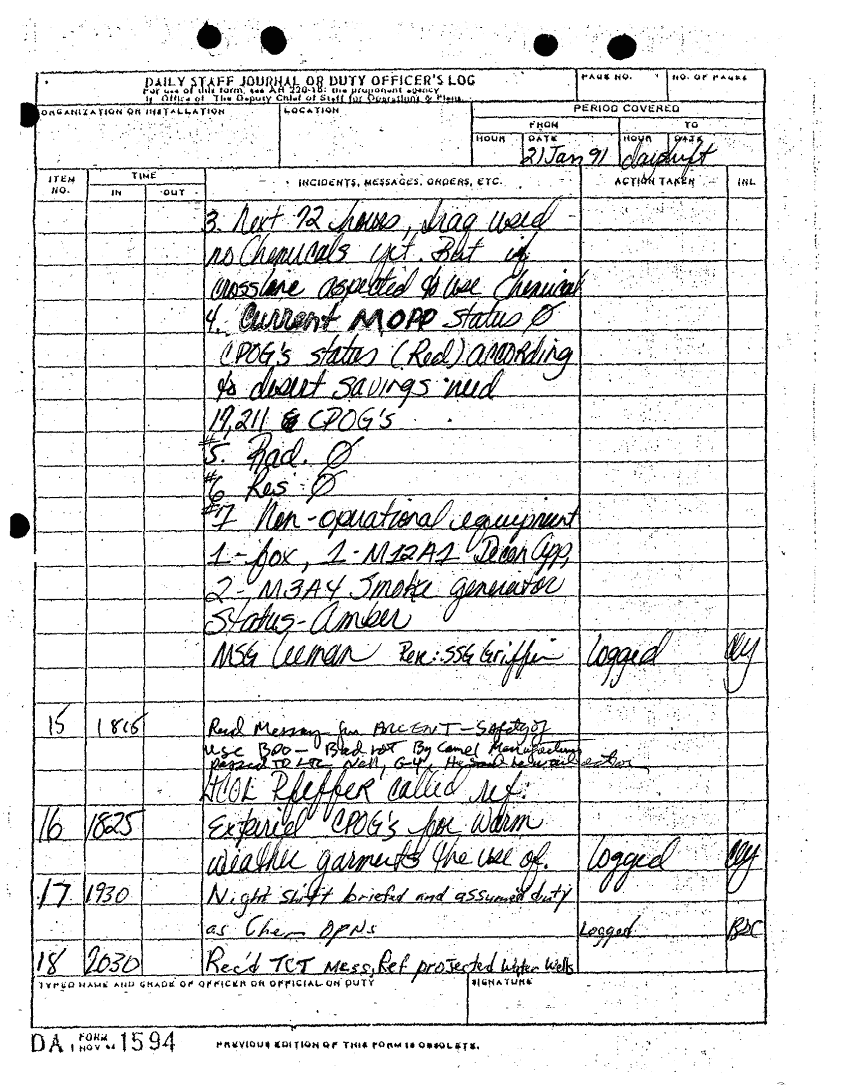 DAILY STAFF JOURNAL OR DUTY OFFICER'S LOG
For use of this form, see AR 220-15; the proponent agency
is Office of The Deputy Chief of Staff for Operations & Plans.
PAGE NO.
NO. OF PAGES
ORGANIZATION OR INSTALLATION
LOCATION
PERIOD COVERED
FROM
TO
HOUR
DATE
HOUR
DATE
21 Jan 91
dayshift
ITEM NO.
TIME
IN
OUT
INCIDENTS, MESSAGES, ORDERS, ETC.
ACTION TAKEN
INL
3. Next 72 hours, Iraq used
no Chemicals yet. But if
cross line aspected to use Chemical
4. Current MOPP status Ø
CPOG's status (Red) according
to desert savings need
19,211 CPOG's
#5. Rad. Ø
#6 Res: Ø
#7 Non-operational equipment
1-fox, 1-M12A1 Decon App,
2-M3A4 Smoke generator
Status-Amber
MSG Rec: SSG Griffin Logged
15 1815 Recd Message fm ARCENT - Safety of
Bad Lot By Camel Manufacturing
Passed TO LTC G-4,
LTCOL Pfeffer called ref:
16 1825 Expired CPOG's for warm
weather garments the use of. Logged
17 1930 Night shift briefed and assumed duty
as Chem OPNS Logged
18 2030 Rec'd TCT Mess, Ref projected Water Wells
TYPED NAME AND GRADE OF OFFICER OR OFFICIAL ON DUTY
SIGNATURE
DA FORM 1 NOV 1594
PREVIOUS EDITION OF THIS FORM IS OBSOLETE.